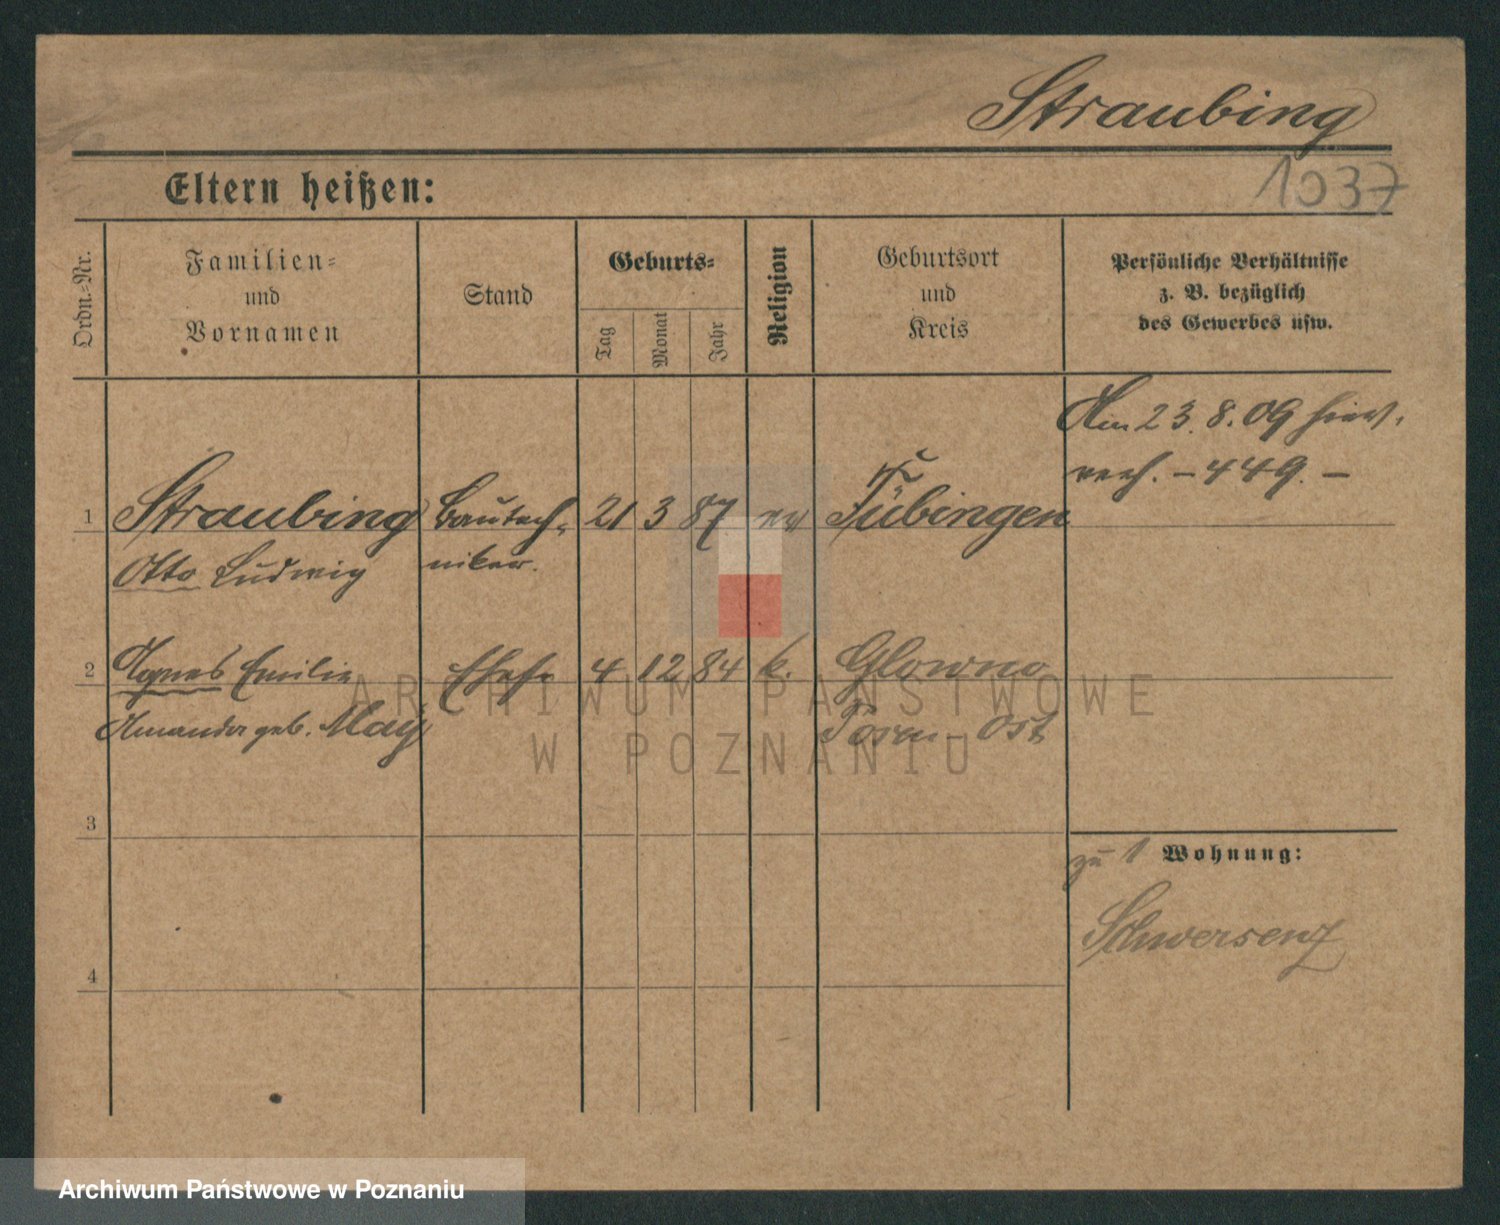 Straubing
1037
Eltern heißen:
Ordn.-Nr.
Familien-
und
Vornamen
Stand
Geburts-
Tag
Monat
Jahr
Religion
Geburtsort
und
Kreis
Persönliche Verhältnisse
z. B. bezüglich
des Gewerbes usw.
Am 23.8.09 hier.
verh. - 449. -
1 Straubing Bautech- 21 3 87 ev Tübingen
Otto Ludwig niker.
2 Agnes Emilie Ehefr. 4 12 84 k. Glowno
Amanda geb. May Posen-Ost
3
zu 1 Wohnung:
Schwersenz
4
ARCHIWUM PAŃSTWOWE
W POZNANIU
Archiwum Państwowe w Poznaniu